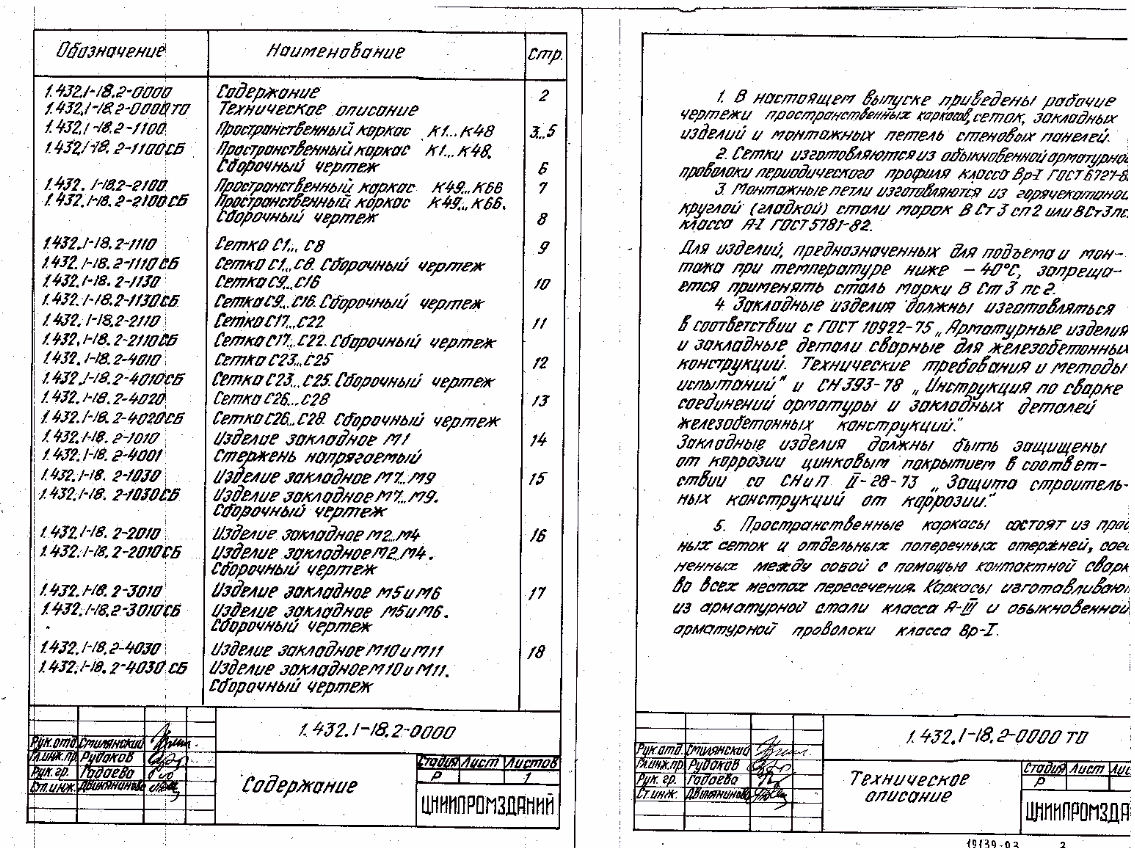 Обозначение Наименование Стр.
1.432.1-18.2-0000 Содержание 2
1.432.1-18.2-0000ТО Техническое описание
1.432.1-18.2-1100 Пространственный каркас К1...К48 3..5
1.432.1-18.2-1100СБ Пространственный каркас К1...К48.
Сборочный чертеж 6
1.432.1-18.2-2100 Пространственный каркас К49...К66 7
1.432.1-18.2-2100СБ Пространственный каркас К49...К66.
Сборочный чертеж 8
1.432.1-18.2-1110 Сетка С1...С8 9
1.432.1-18.2-1110СБ Сетка С1...С8. Сборочный чертеж
1.432.1-18.2-1130 Сетка С9...С16 10
1.432.1-18.2-1130СБ Сетка С9...С16. Сборочный чертеж
1.432.1-18.2-2110 Сетка С17...С22 11
1.432.1-18.2-2110СБ Сетка С17...С22. Сборочный чертеж
1.432.1-18.2-4010 Сетка С23...С25 12
1.432.1-18.2-4010СБ Сетка С23...С25. Сборочный чертеж
1.432.1-18.2-4020 Сетка С26...С28 13
1.432.1-18.2-4020СБ Сетка С26...С28. Сборочный чертеж
1.432.1-18.2-1010 Изделие закладное М1 14
1.432.1-18.2-4001 Стержень напрягаемый
1.432.1-18.2-1030 Изделие закладное М7...М9 15
1.432.1-18.2-1030СБ Изделие закладное М7...М9.
Сборочный чертеж
1.432.1-18.2-2010 Изделие закладное М2...М4 16
1.432.1-18.2-2010СБ Изделие закладное М2...М4.
Сборочный чертеж
1.432.1-18.2-3010 Изделие закладное М5 и М6 17
1.432.1-18.2-3010СБ Изделие закладное М5 и М6.
Сборочный чертеж
1.432.1-18.2-4030 Изделие закладное М10 и М11 18
1.432.1-18.2-4030СБ Изделие закладное М10 и М11.
Сборочный чертеж
1.432.1-18.2-0000
Рук.отд. Стилянский
Гл.инж.пр. Рудаков
Рук. гр. Гадаева
Ст.инж. Двинянинова
Содержание
Стадия Лист Листов
Р 1
ЦНИИПРОМЗДАНИЙ
1. В настоящем выпуске приведены рабочие
чертежи пространственных каркасов, сеток, закладных
изделий и монтажных петель стеновых панелей.
2. Сетки изготовляются из обыкновенной арматурно
проволоки периодического профиля класса Вр-I ГОСТ 6727-8
3. Монтажные петли изготовляются из горячекатаной
круглой (гладкой) стали марок ВСт3сп2 или ВСт3пс
класса А-I ГОСТ 5781-82.
Для изделий, предназначенных для подъема и мон-
тажа при температуре ниже -40°С, запреща-
ется применять сталь марки ВСт3пс2.
4. Закладные изделия должны изготовляться
в соответствии с ГОСТ 10922-75 „Арматурные изделия
и закладные детали сварные для железобетонных
конструкций. Технические требования и методы
испытаний" и СН 393-78 „Инструкция по сварке
соединений арматуры и закладных деталей
железобетонных конструкций."
Закладные изделия должны быть защищены
от коррозии цинковым покрытием в соответ-
ствии со СНиП II-28-73 „Защита строитель-
ных конструкций от коррозии."
5. Пространственные каркасы состоят из пло
ных сеток и отдельных поперечных стержней, сое
ненных между собой с помощью контактной сварк
во всех местах пересечения. Каркасы изготавливаю
из арматурной стали класса А-III и обыкновенной
арматурной проволоки класса Вр-I.
1.432.1-18.2-0000 ТО
Рук.отд. Стилянский
Гл.инж.пр. Рудаков
Рук. гр. Гадаева
Ст.инж. Двинянинова
Техническое
описание
Стадия Лист Лис
Р
ЦНИИПРОМЗДА
19139-03 3